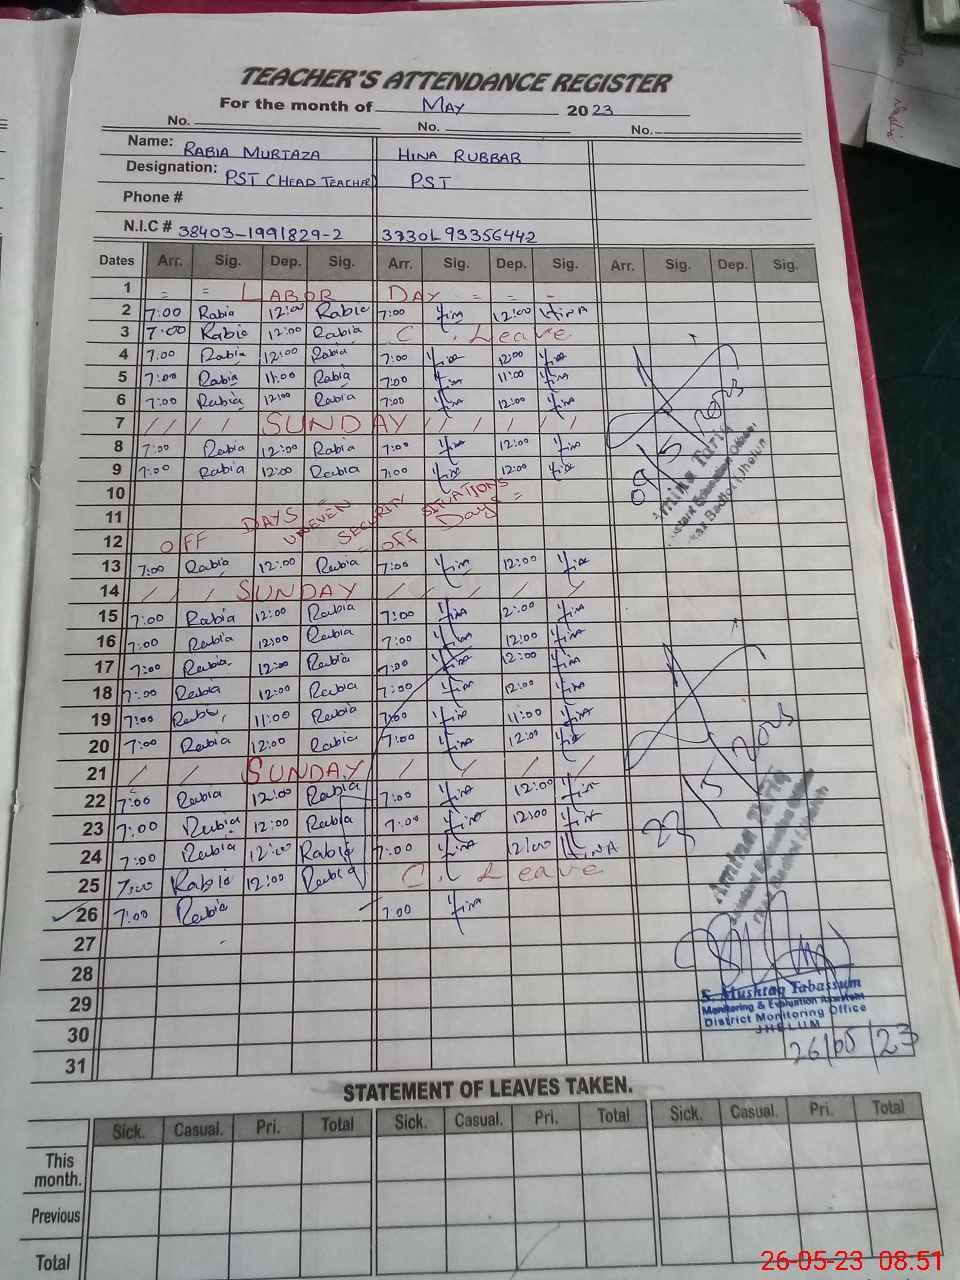 TEACHER'S ATTENDANCE REGISTER
For the month of MAY 2023
No. No. No.
Name: RABIA MURTAZA HINA RUBBAB
Designation: PST (HEAD TEACHER) PST
Phone #
N.I.C # 38403-1991829-2 3730L93356442
Dates Arr. Sig. Dep. Sig. Arr. Sig. Dep. Sig. Arr. Sig. Dep. Sig.
1 = = LABOR DAY = = -
2 7:00 Rabia 12:00 Rabia 7:00 Hina 12:00 HinA
3 7:00 Rabia 12:00 Rabia C. Leave
4 7:00 Rabia 12:00 Rabia 7:00 Hina 12:00 Hina
5 7:00 Rabia 11:00 Rabia 7:00 Hina 11:00 Hina
6 7:00 Rabia 12:00 Rabia 7:00 Hina 12:00 Hina
7 / / / / SUNDAY / / / / / /
8 7:00 Rabia 12:00 Rabia 7:00 Hina 12:00 Hina
9 7:00 Rabia 12:00 Rabia 7:00 Hina 12:00 Hina
10
11 DAYS UNEVEN SECURITY SITATIONS Days =
12 OFF = off
13 7:00 Rabia 12:00 Rabia 7:00 Hina 12:00 Hina
14 / / / / SUNDAY / / / / / /
15 7:00 Rabia 12:00 Rabia 7:00 Hina 12:00 Hina
16 7:00 Rabia 12:00 Rabia 7:00 Hina 12:00 Hina
17 7:00 Rabia 12:00 Rabia 7:00 Hina 12:00 Hina
18 7:00 Rabia 12:00 Rabia 7:00 Hina 12:00 Hina
19 7:00 Rabia 11:00 Rabia 7:00 Hina 11:00 Hina
20 7:00 Rabia 12:00 Rabia 7:00 Hina 12:00 Hina
21 / / SUNDAY / / / / /
22 7:00 Rabia 12:00 Rabia 7:00 Hina 12:00 Hina
23 7:00 Rabia 12:00 Rabia 7:00 Hina 12:00 Hina
24 7:00 Rabia 12:00 Rabia 7:00 Hina 12:00 HINA
25 7:00 Rabia 12:00 Rabia C. Leave
26 7:00 Rabia 7:00 Hina
27
28
29
30
31
09/5/2023
Amina Tariq
22/5/2023
Amina Tariq
S. Mushtaq Tabassum
Monitoring & Evaluation Assistant
District Monitoring Office
JHELUM
26/05/23
STATEMENT OF LEAVES TAKEN.
Sick. Casual. Pri. Total Sick. Casual. Pri. Total Sick. Casual. Pri. Total
This month.
Previous
Total
26-05-23 08.51